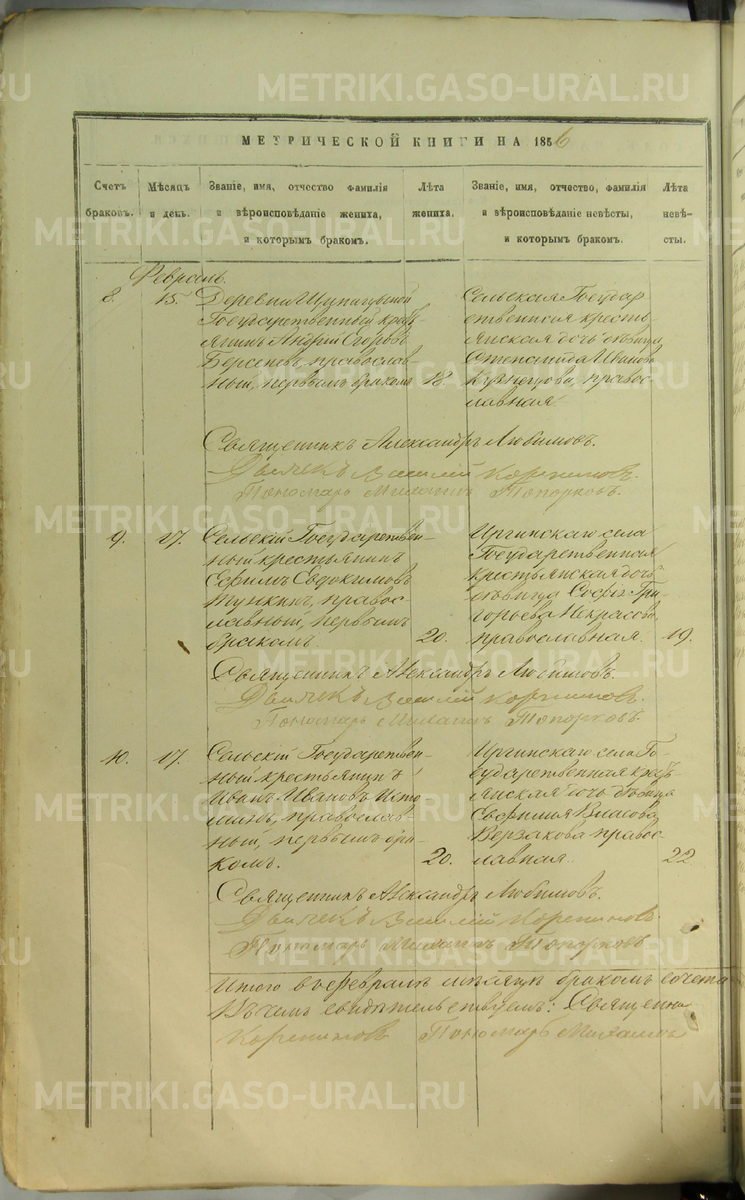 МЕТРИЧЕСКОЙ КНИГИ НА 1856
Счетъ браковъ.
Мѣсяцъ и день.
Званіе, имя, отчество фамилія
и вѣроисповѣданіе жениха,
и которымъ бракомъ.
Лѣта жениха.
Званіе, имя, отчество, фамилія
и вѣроисповѣданіе невѣсты,
и которымъ бракомъ.
Лѣта невѣ-
сты.
Февраль.
8. 15.
Деревни
Государственный кресть-
янинъ Андрей Егоровъ
Берсеневъ, православ-
ный, первымъ бракомъ 18.
Сельская Государ
ственная кресть
янская дочь дѣвица
Степанида Иванова
Кузнецова, правос-
лавная.
Священникъ Александръ Любимовъ.
Дьячекъ Василий Коретиновъ.
Пономарь Михаилъ Топорковъ.
9. 17.
Сельскій Государствен-
ный крестьянинъ
Ефимъ Евдокимовъ
правос
лавный, первымъ
бракомъ. 20.
Иргинскаго села
Государственная
крестьянская дочь
дѣвица Софья Гри
горьева Некрасова
православная. 19.
Священникъ Александръ Любимовъ.
Дьячекъ Василий Коретиновъ.
Пономарь Михаилъ Топорковъ.
10. 17.
Сельскій Государствен-
ный крестьянинъ
Иванъ Ивановъ Исто
минъ, православ-
ный, первымъ бра-
комъ. 20.
Иргинскаго села Го-
сударственная кресть-
янская дочь дѣвица
Евфимия Власова
Верзакова правос-
лавная. 22
Священникъ Александръ Любимовъ.
Дьячекъ Василий Коретиновъ.
Пономарь Михаилъ Топорковъ
Итого въ февралѣ мѣсяцѣ бракомъ сочета
Въ чемъ свидѣтельствуемъ: Священни
Коретиновъ Пономарь Михаилъ
METRIKI.GASO-URAL.RU